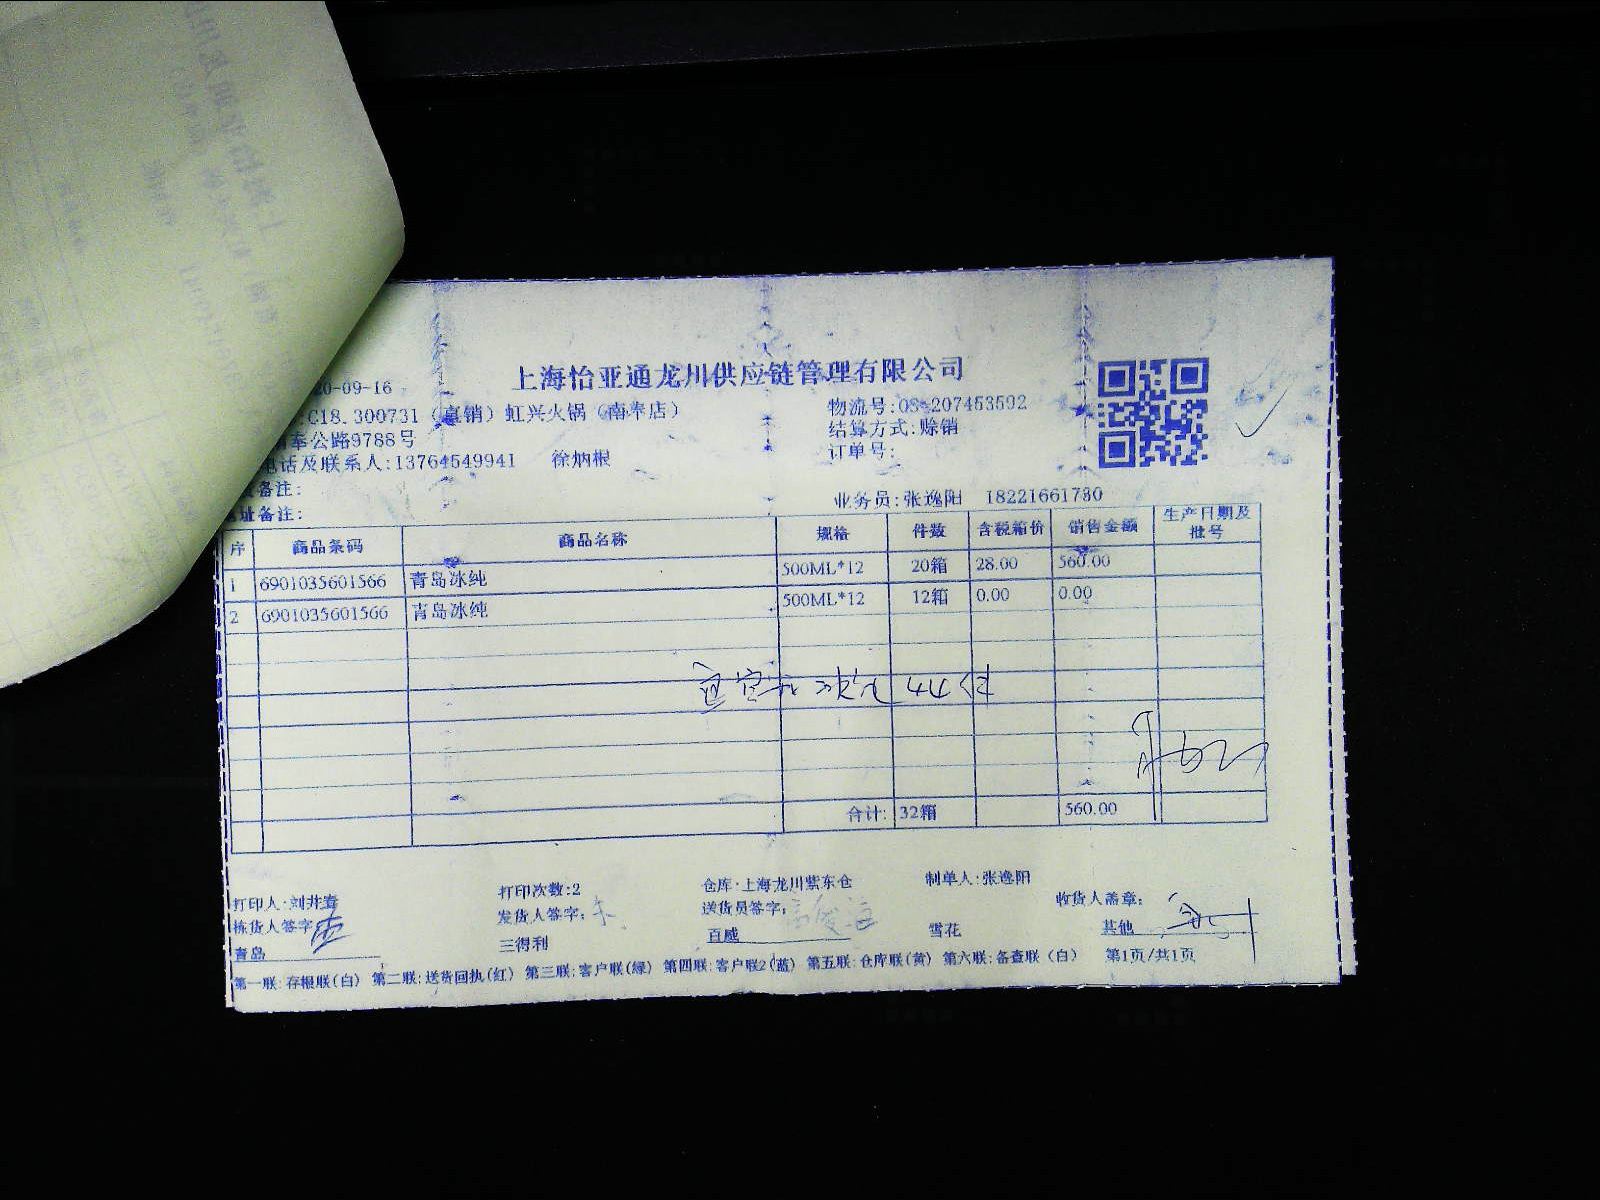 上海怡亚通龙川供应链管理有限公司
20-09-16
:C18.300731（直销）虹兴火锅（南奉店）
物流号:08-207453592
南奉公路9788号
结算方式:赊销
电话及联系人:13764549941 徐炳根
订单号:
备注:
业务员:张逸阳 18221661780
地址备注:
序 商品条码 商品名称 规格 件数 含税箱价 销售金额 生产日期及批号
1 6901035601566 青岛冰纯 500ML*12 20箱 28.00 560.00
2 6901035601566 青岛冰纯 500ML*12 12箱 0.00 0.00
44
合计: 32箱 560.00
打印人:刘井春 打印次数:2 仓库:上海龙川紫东仓 制单人:张逸阳
拣货人签字: 发货人签字: 送货员签字: 收货人盖章:
青岛 三得利 百威 雪花 其他
第一联:存根联(白) 第二联:送货回执(红) 第三联:客户联(绿) 第四联:客户联2(蓝) 第五联:仓库联(黄) 第六联:备查联（白） 第1页/共1页